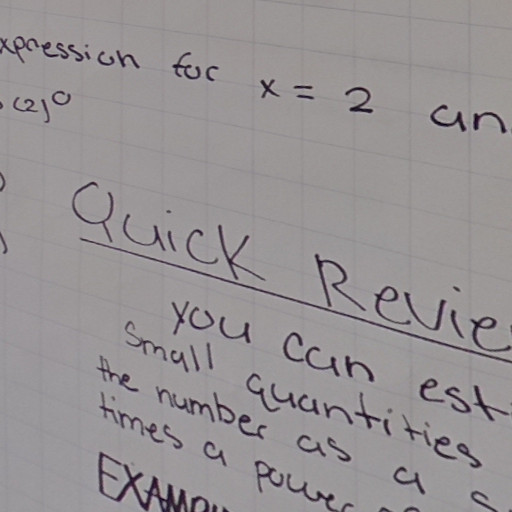 xpression for x = 2 an
(2)⁰
Quick Revie
you can est
small quantities
the number as a s
times a power
EXAMP